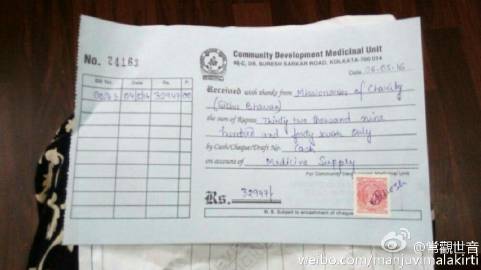 Community Development Medicinal Unit
86-C, DR. SURESH SARKAR ROAD, KOLKATA-700 014
No. 24163
Date 06-05-16
Bill No. Date Rs. P.
32947 00
Received with thanks from Missionaries of Charity
(Sishu Bhavan)
the sum of Rupees Thirty two thousand nine
hundred and forty seven only
by Cash/Cheque/Draft No. Cash
on account of Medicine Supply
For Community Development Medicinal Unit
Rs. 32947/-
N. B. Subject to encashment of cheque
@常觀世音
weibo.com/manjuvimalakirti